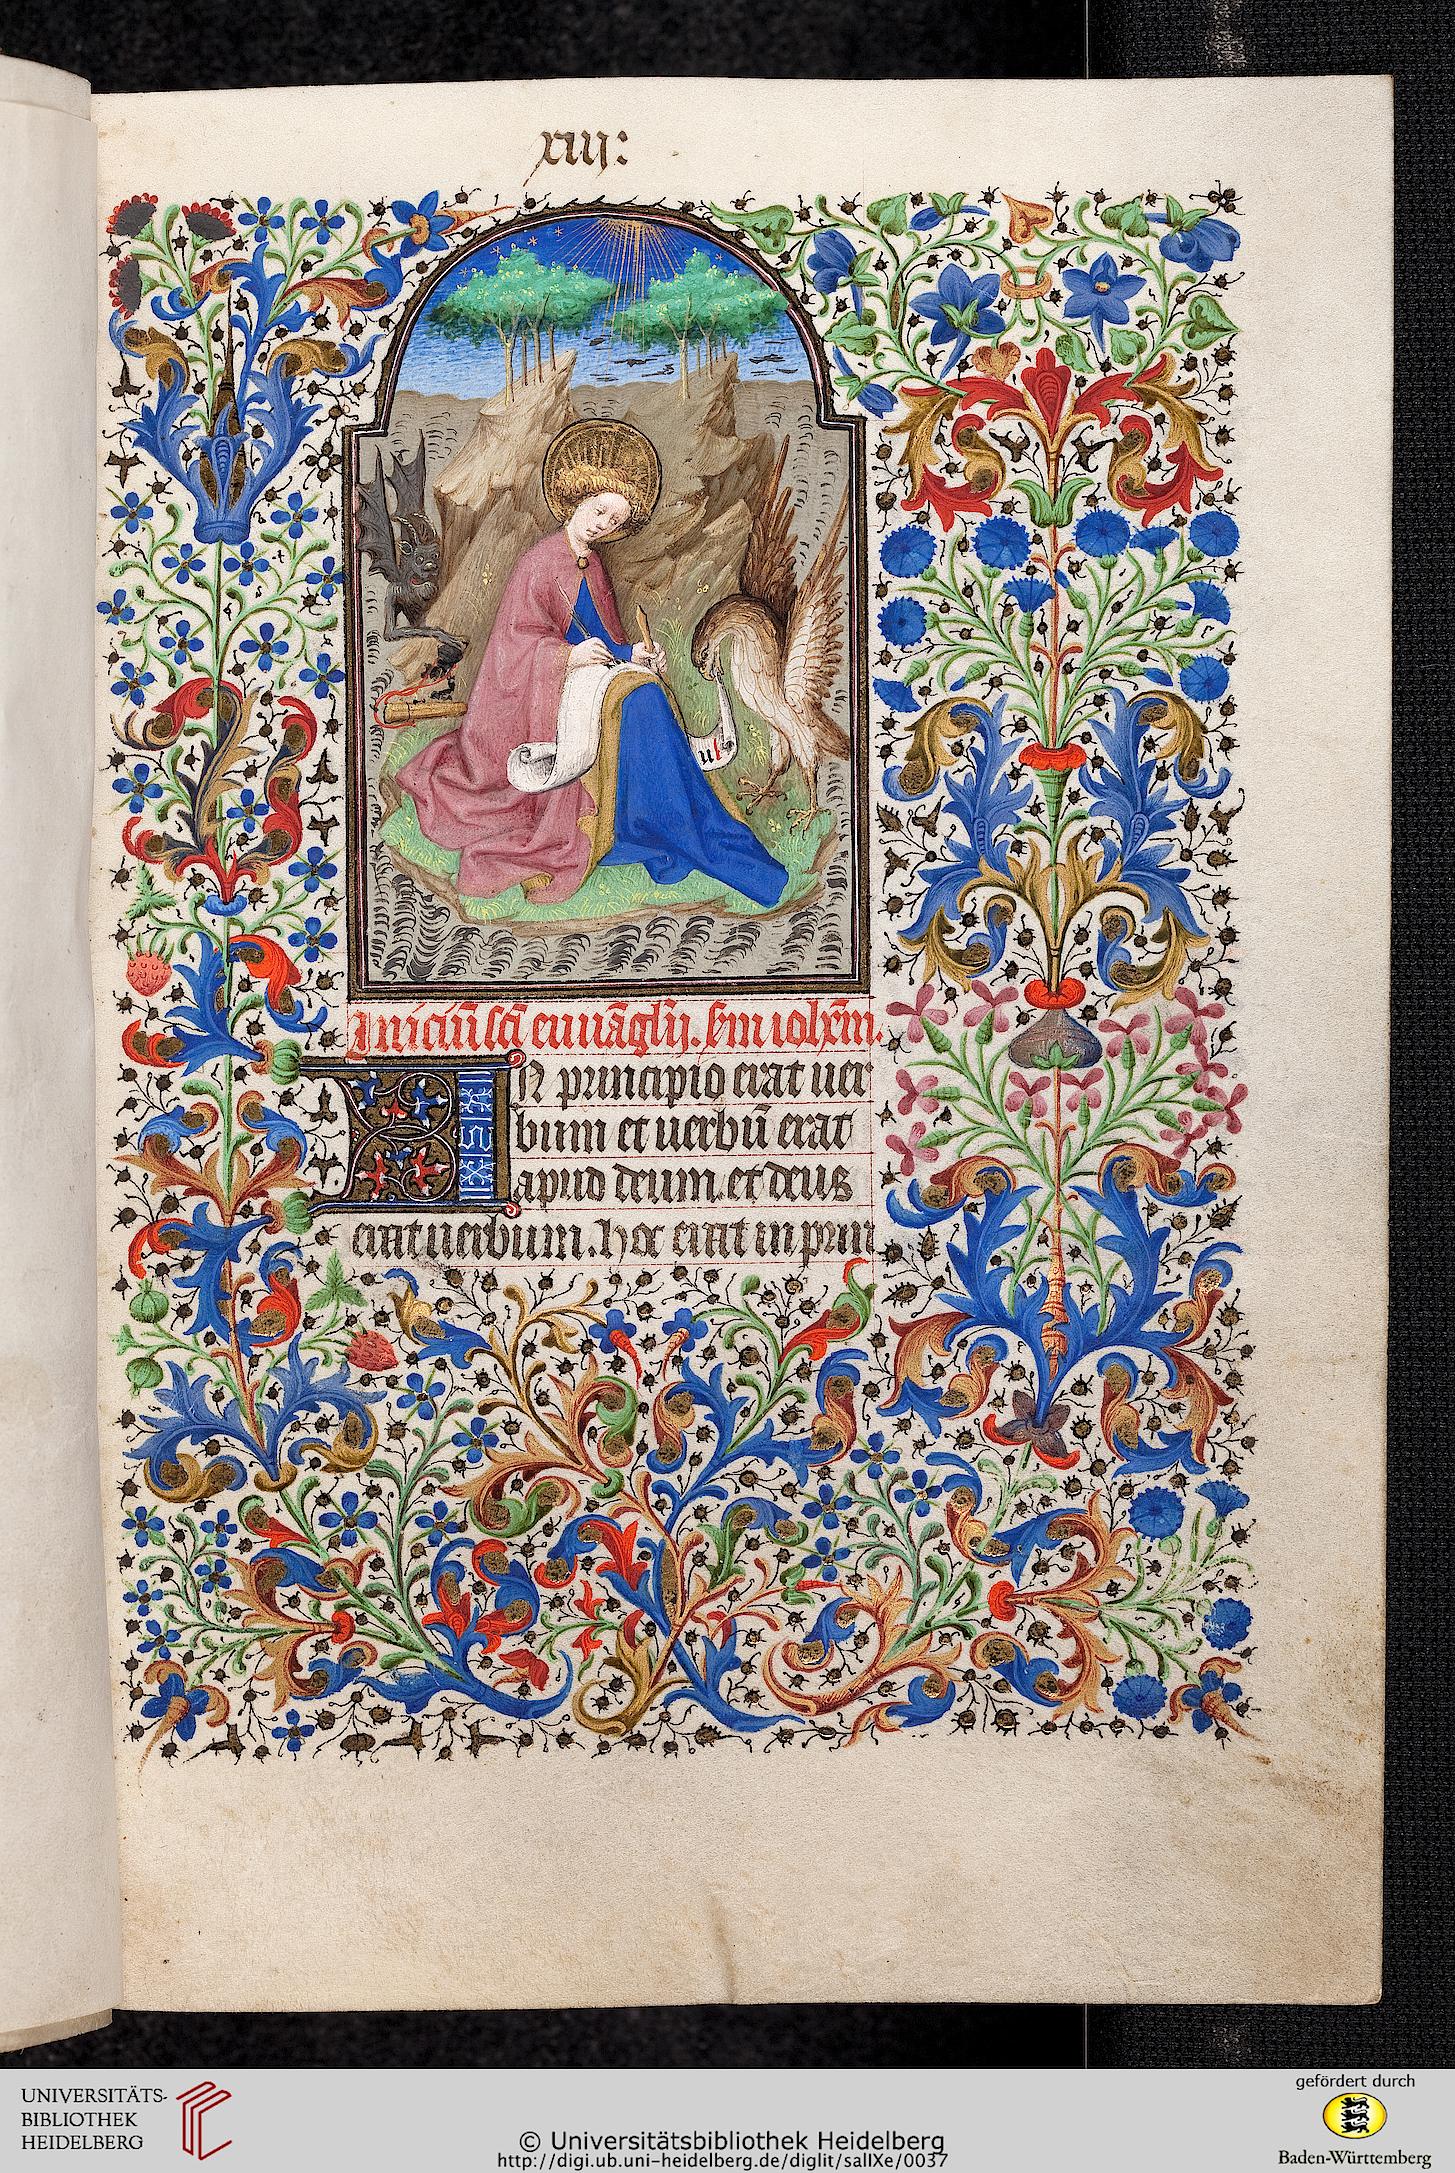 xiiij:
ui
Iniciū sci euuāglij. sm iohēm.
IN principio erat uer
bum et uerbū erat
apud deum. et deus
erat uerbum. hoc erat in prin
UNIVERSITÄTS-
BIBLIOTHEK
HEIDELBERG
© Universitätsbibliothek Heidelberg
http://digi.ub.uni-heidelberg.de/diglit/salIXe/0037
gefördert durch
Baden-Württemberg